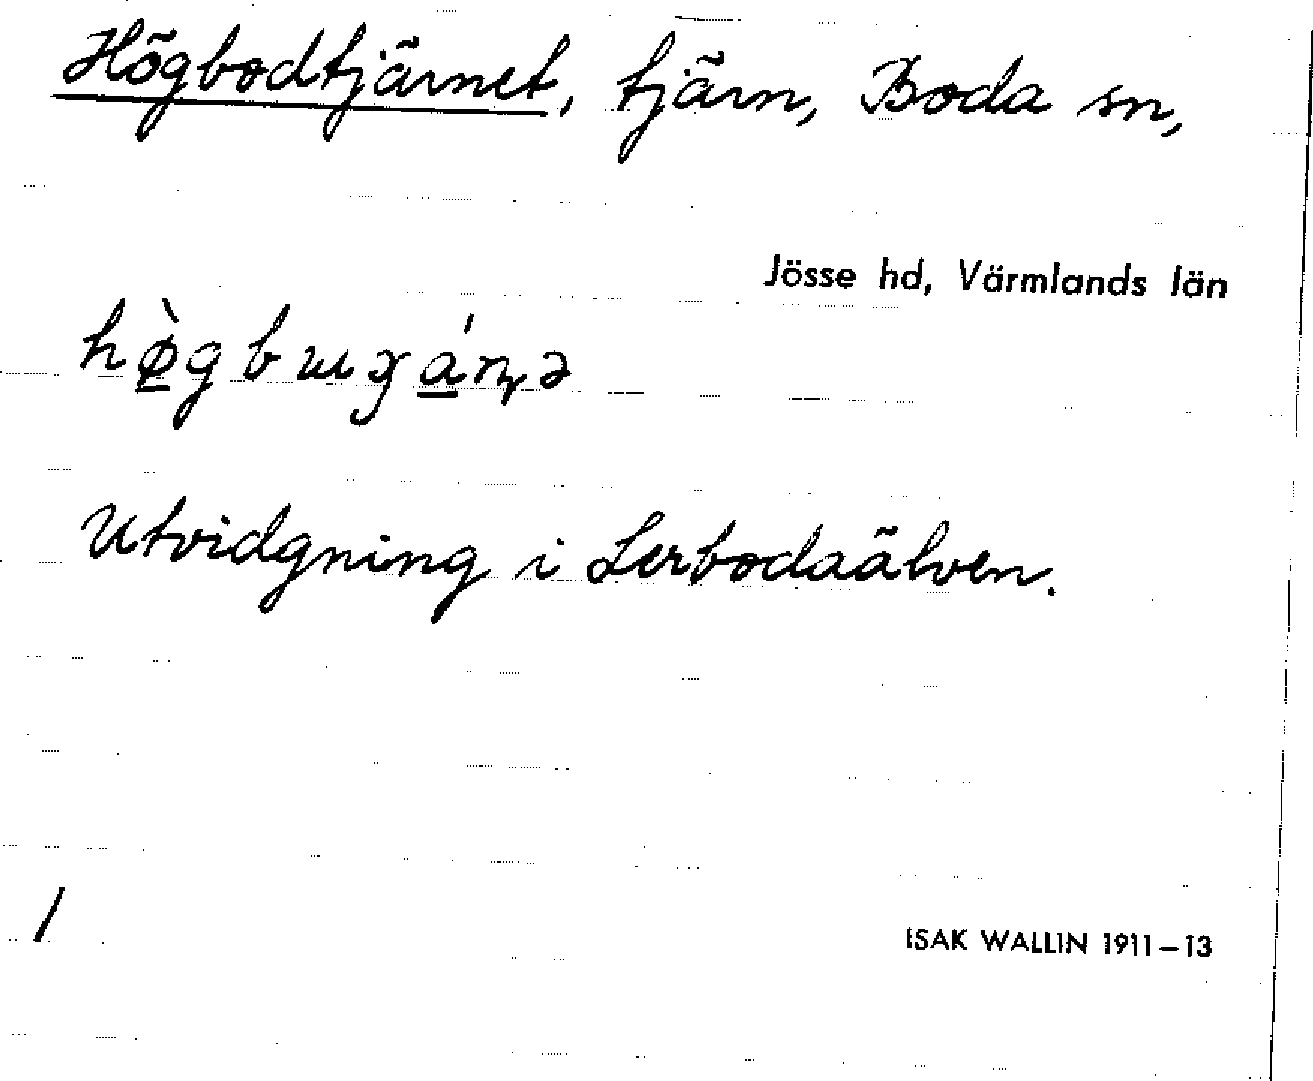 Högbodtjärnet, tjärn, Boda sn,
Jösse hd, Värmlands län
Utvidgning i Lerbodaälven.
/
ISAK WALLIN 1911–13